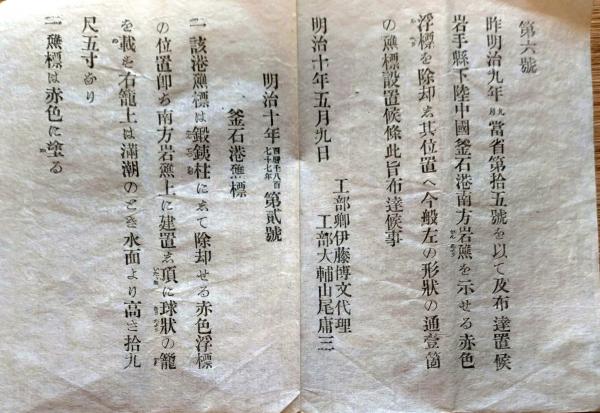 第六號
昨明治九年九月當省第拾五號を以て及布達置候
岩手縣下陸中國釜石港南方岩礁を示せる赤色
浮標を除却し其位置へ今般左の形狀の通壹箇
の礁標設置候條此旨布達候事
明治十年五月九日
工部卿伊藤博文代理
工部大輔山尾庸三
明治十年西曆千八百七十七年第貳號
釜石港礁標
一該港礁標は鍛銕柱にて除却せる赤色浮標
の位置卽ち南方岩礁上に建置し頂に球狀の籠
を載せ右籠上は滿潮のとき水面より高さ拾九
尺五寸なり
一礁標は赤色に塗る